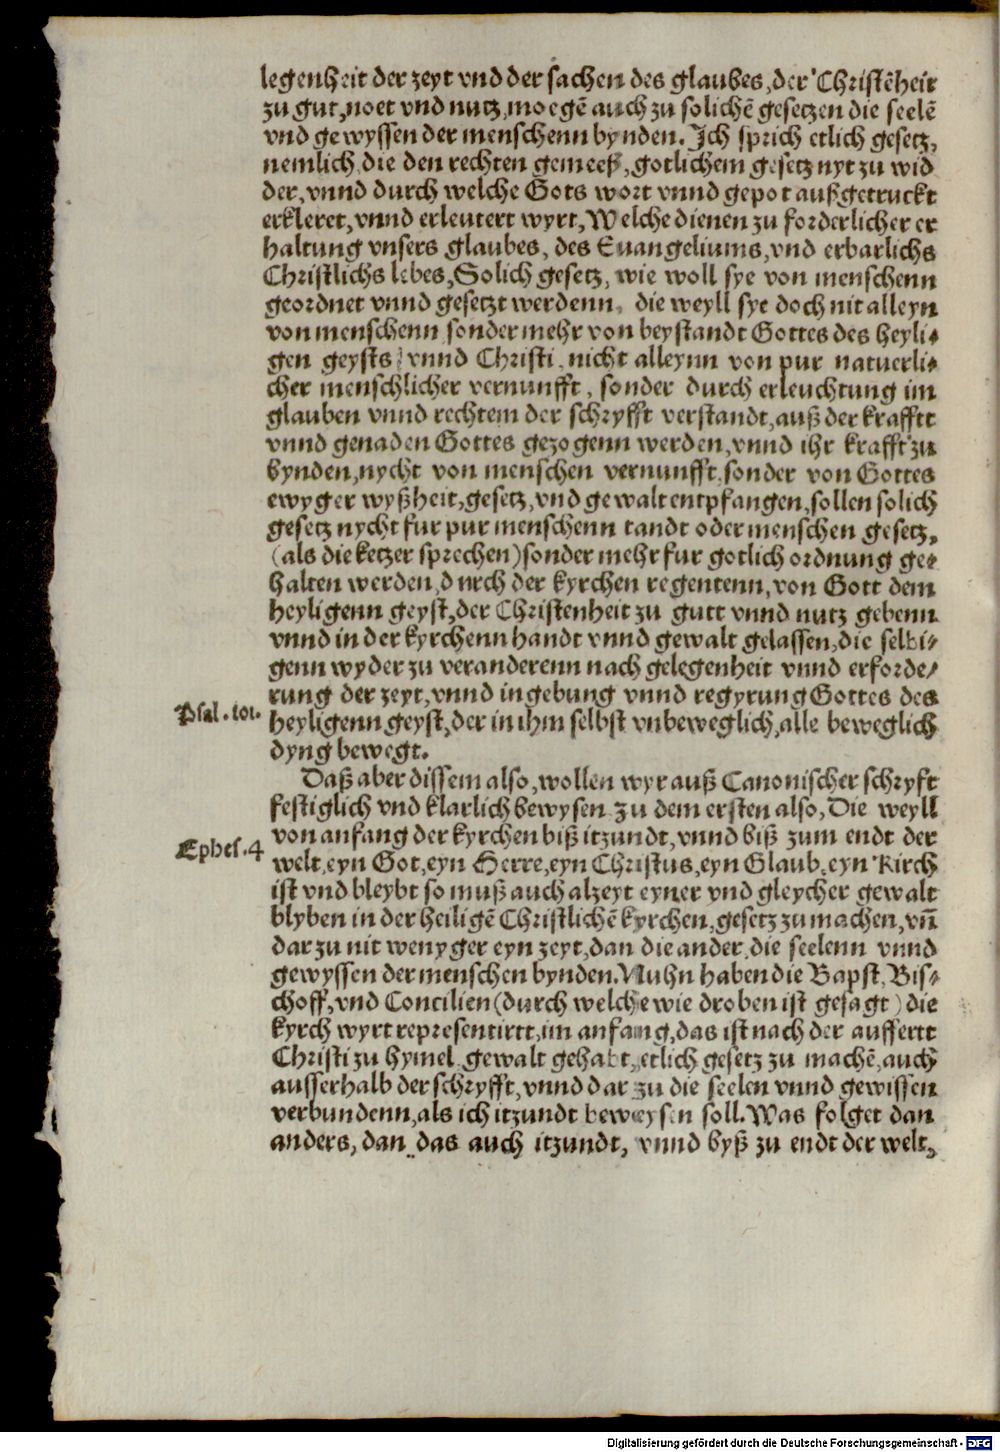 legenheit der zeyt vnd der sachen des glaubes, der Christēheit
zu gut, noet vnd nutz, moegē auch zu solichē gesetzen die seelē
vnd gewyssen der menschenn bynden. Ich sprich etlich gesetz,
nemlich die den rechten gemeeß, gotlichem gesetz nyt zu wid
der, vnnd durch welche Gots wort vnnd gepot außgetruckt
erkleret, vnnd erleutert wyrt, Welche dienen zu forderlicher er
haltung vnsers glaubes, des Euangeliums, vnd erbarlichs
Christlichs lebes, Solich gesetz, wie woll sye von menschenn
geordnet vnnd gesetzt werdenn, die weyll sye doch nit alleyn
von menschenn sonder mehr von beystandt Gottes des heyli⸗
gen geysts, vnnd Christi, nicht alleynn von pur natuerli⸗
cher menschlicher vernunfft, sonder durch erleuchtung im
glauben vnnd rechtem der schryfft verstandt, auß der krafftt
vnnd genaden Gottes gezogenn werden, vnnd ihr krafft zu
bynden, nycht von menschen vernunfft, sonder von Gottes
ewyger wyßheit, gesetz, vnd gewalt entpfangen, sollen solich
gesetz nycht fur pur menschenn tandt oder menschen gesetz,
(als die ketzer sprechen) sonder mehr fur gotlich ordnung ge⸗
halten werden, durch der kyrchen regentenn, von Gott dem
heyligenn geyst, der Christenheit zu gutt vnnd nutz gebenn
vnnd in der kyrchenn handt vnnd gewalt gelassen, die selbi⸗
genn wyder zu veranderenn nach gelegenheit vnnd erforde⸗
rung der zeyt, vnnd ingebung vnnd regyrung Gottes des
Psal. 101. heyligenn geyst, der in ihm selbst vnbeweglich, alle beweglich
dyng bewegt.
Daß aber dissem also, wollen wyr auß Canonischer schryft
festiglich vnd klarlich bewysen zu dem ersten also, Die weyll
von anfang der kyrchen biß itzundt, vnnd biß zum endt der
Ephes. 4 welt, eyn Got, eyn Herre, eyn Christus, eyn Glaub, eyn Kirch
ist vnd bleybt so muß auch alzeyt eyner vnd gleycher gewalt
blyben in der heiligē Christlichē kyrchen, gesetz zu machen, vn̄
dar zu nit wenyger eyn zeyt, dan die ander, die seelenn vnnd
gewyssen der menschen bynden. Nuhn haben die Bapst, Bis⸗
choff, vnd Concilien (durch welche wie droben ist gesagt) die
kyrch wyrt representirtt, im anfang, das ist nach der auffertt
Christi zu hymel gewalt gehabt, etlich gesetz zu machē, auch
ausserhalb der schryfft, vnnd dar zu die seelen vnnd gewissen
verbundenn, als ich itzundt beweysen soll. Was folget dan
anders, dan das auch itzundt, vnnd byß zu endt der welt,
Digitalisierung gefördert durch die Deutsche Forschungsgemeinschaft - DFG